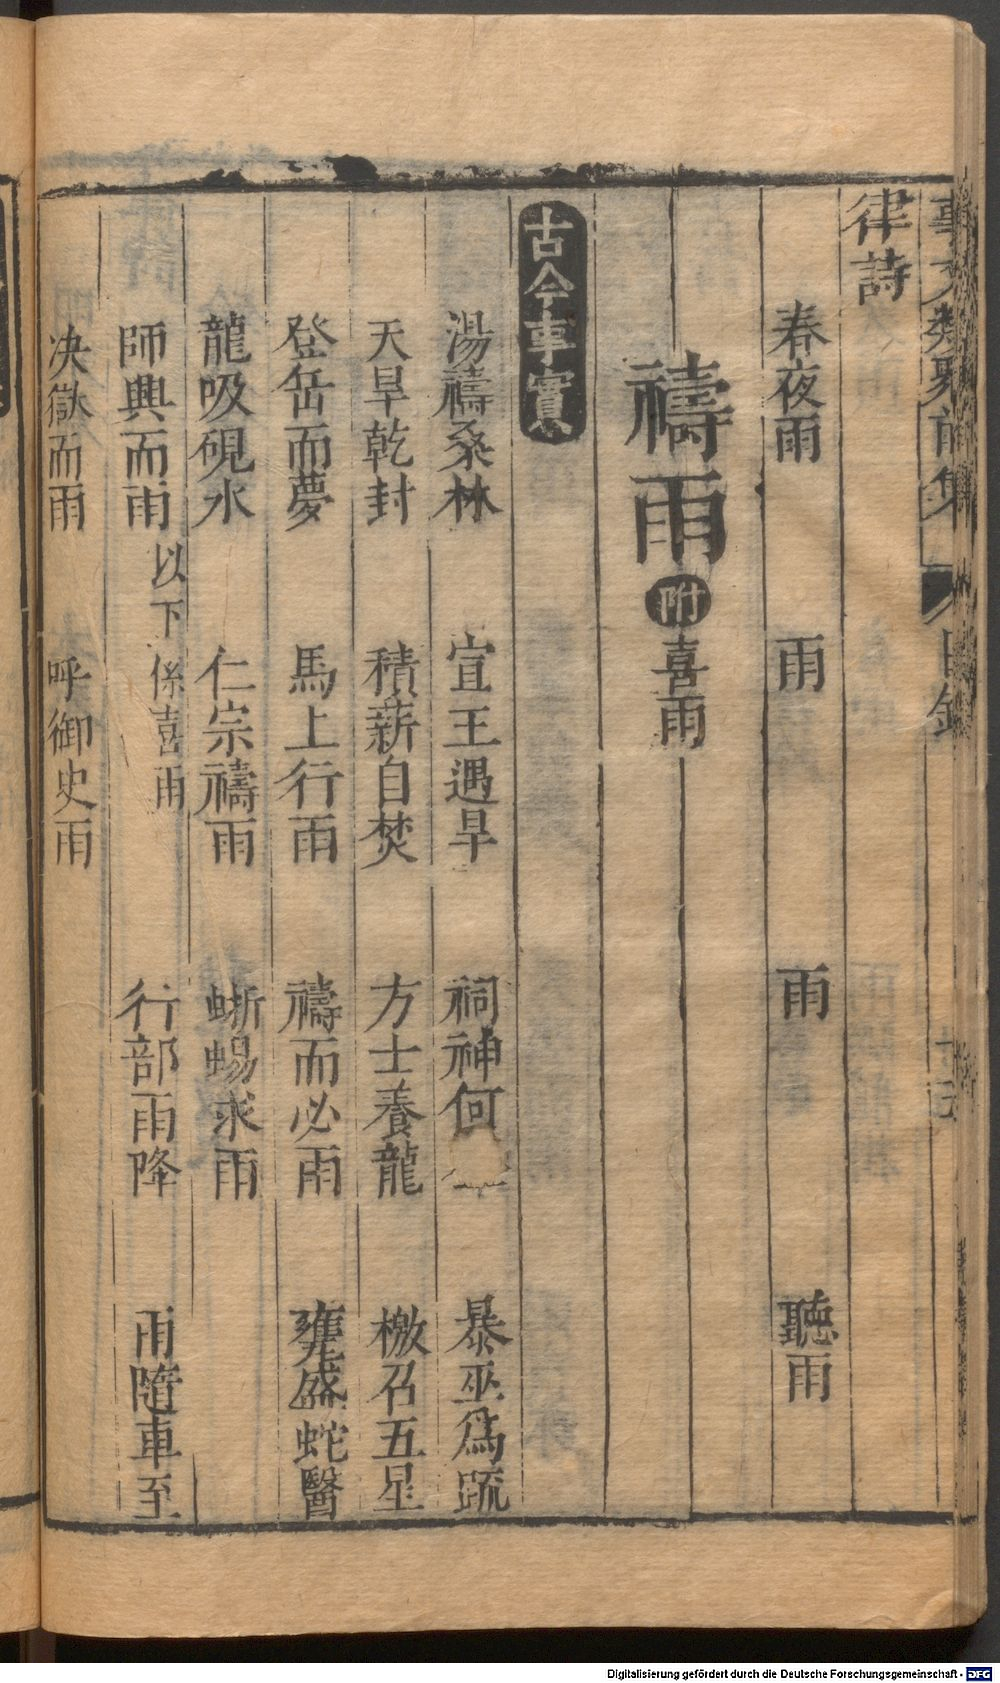 事文類聚前集 目錄
律詩
春夜雨 雨 雨 聽雨
禱雨 附 喜雨
古今事實
湯禱桑林 宣王遇旱 祠神何 暴巫爲䟽
天旱乾封 積薪自焚 方士養龍 檄召五星
登岳而夢 馬上行雨 禱而必雨 甕盛蛇醫
龍吸硯水 仁宗禱雨 蜥蜴求雨
師興而雨 以下係喜雨 行部雨降 雨隨車至
决獄而雨 呼御史雨
Digitalisierung gefördert durch die Deutsche Forschungsgemeinschaft - DFG